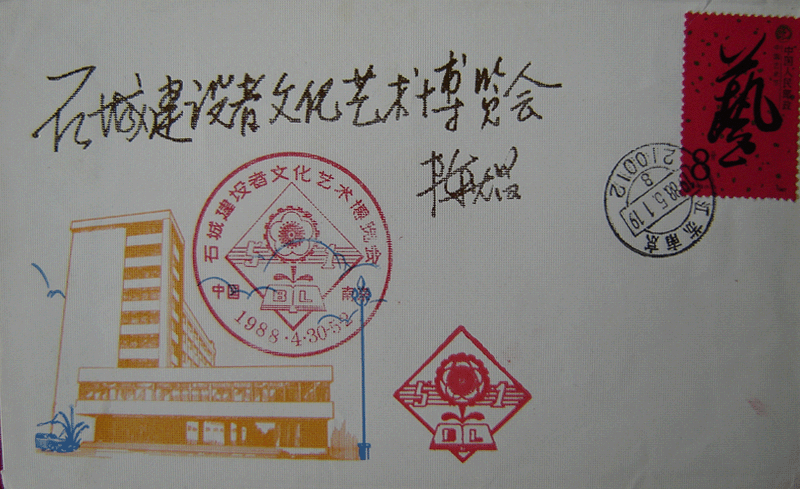 石城建设者文化艺术博览会
石城建设者文化艺术博览会
中国 南京
5 1
BL
1988·4·30-5·2
5 1
BL
中国人民邮政
藝
8
210012
8
1988.5.1.19
江苏南京